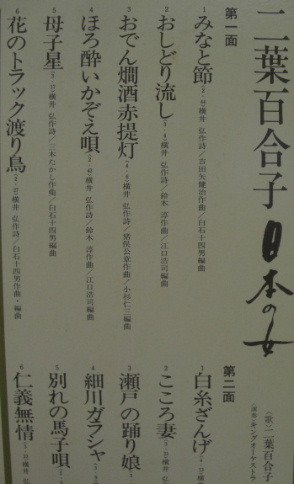 二葉百合子 日本の女
第一面
1 みなと節
横井 弘作詩/吉田矢健治作曲/白石十四男編曲
2 おしどり流し
横井 弘作詩/鈴木 淳作曲/江口浩司編曲
3 おでん燗酒赤提灯
横井 弘作詩/猪俣公章作曲/小杉仁三編曲
4 ほろ酔いかぞえ唄
横井 弘作詩/鈴木 淳作曲/江口浩司編曲
5 母子星
横井 弘作詩/三木たかし作曲/白石十四男編曲
6 花のトラック渡り鳥
横井 弘作詩/白石十四男作曲・編曲
〈歌〉二葉百合子
〈演奏〉キングオーケストラ
第二面
1 白糸ざんげ
横井
2 こころ妻
横井 弘作
3 瀬戸の踊り娘
横井
4 細川ガラシャ
横井
5 別れの馬子唄
横井
6 仁義無情
横井 弘作